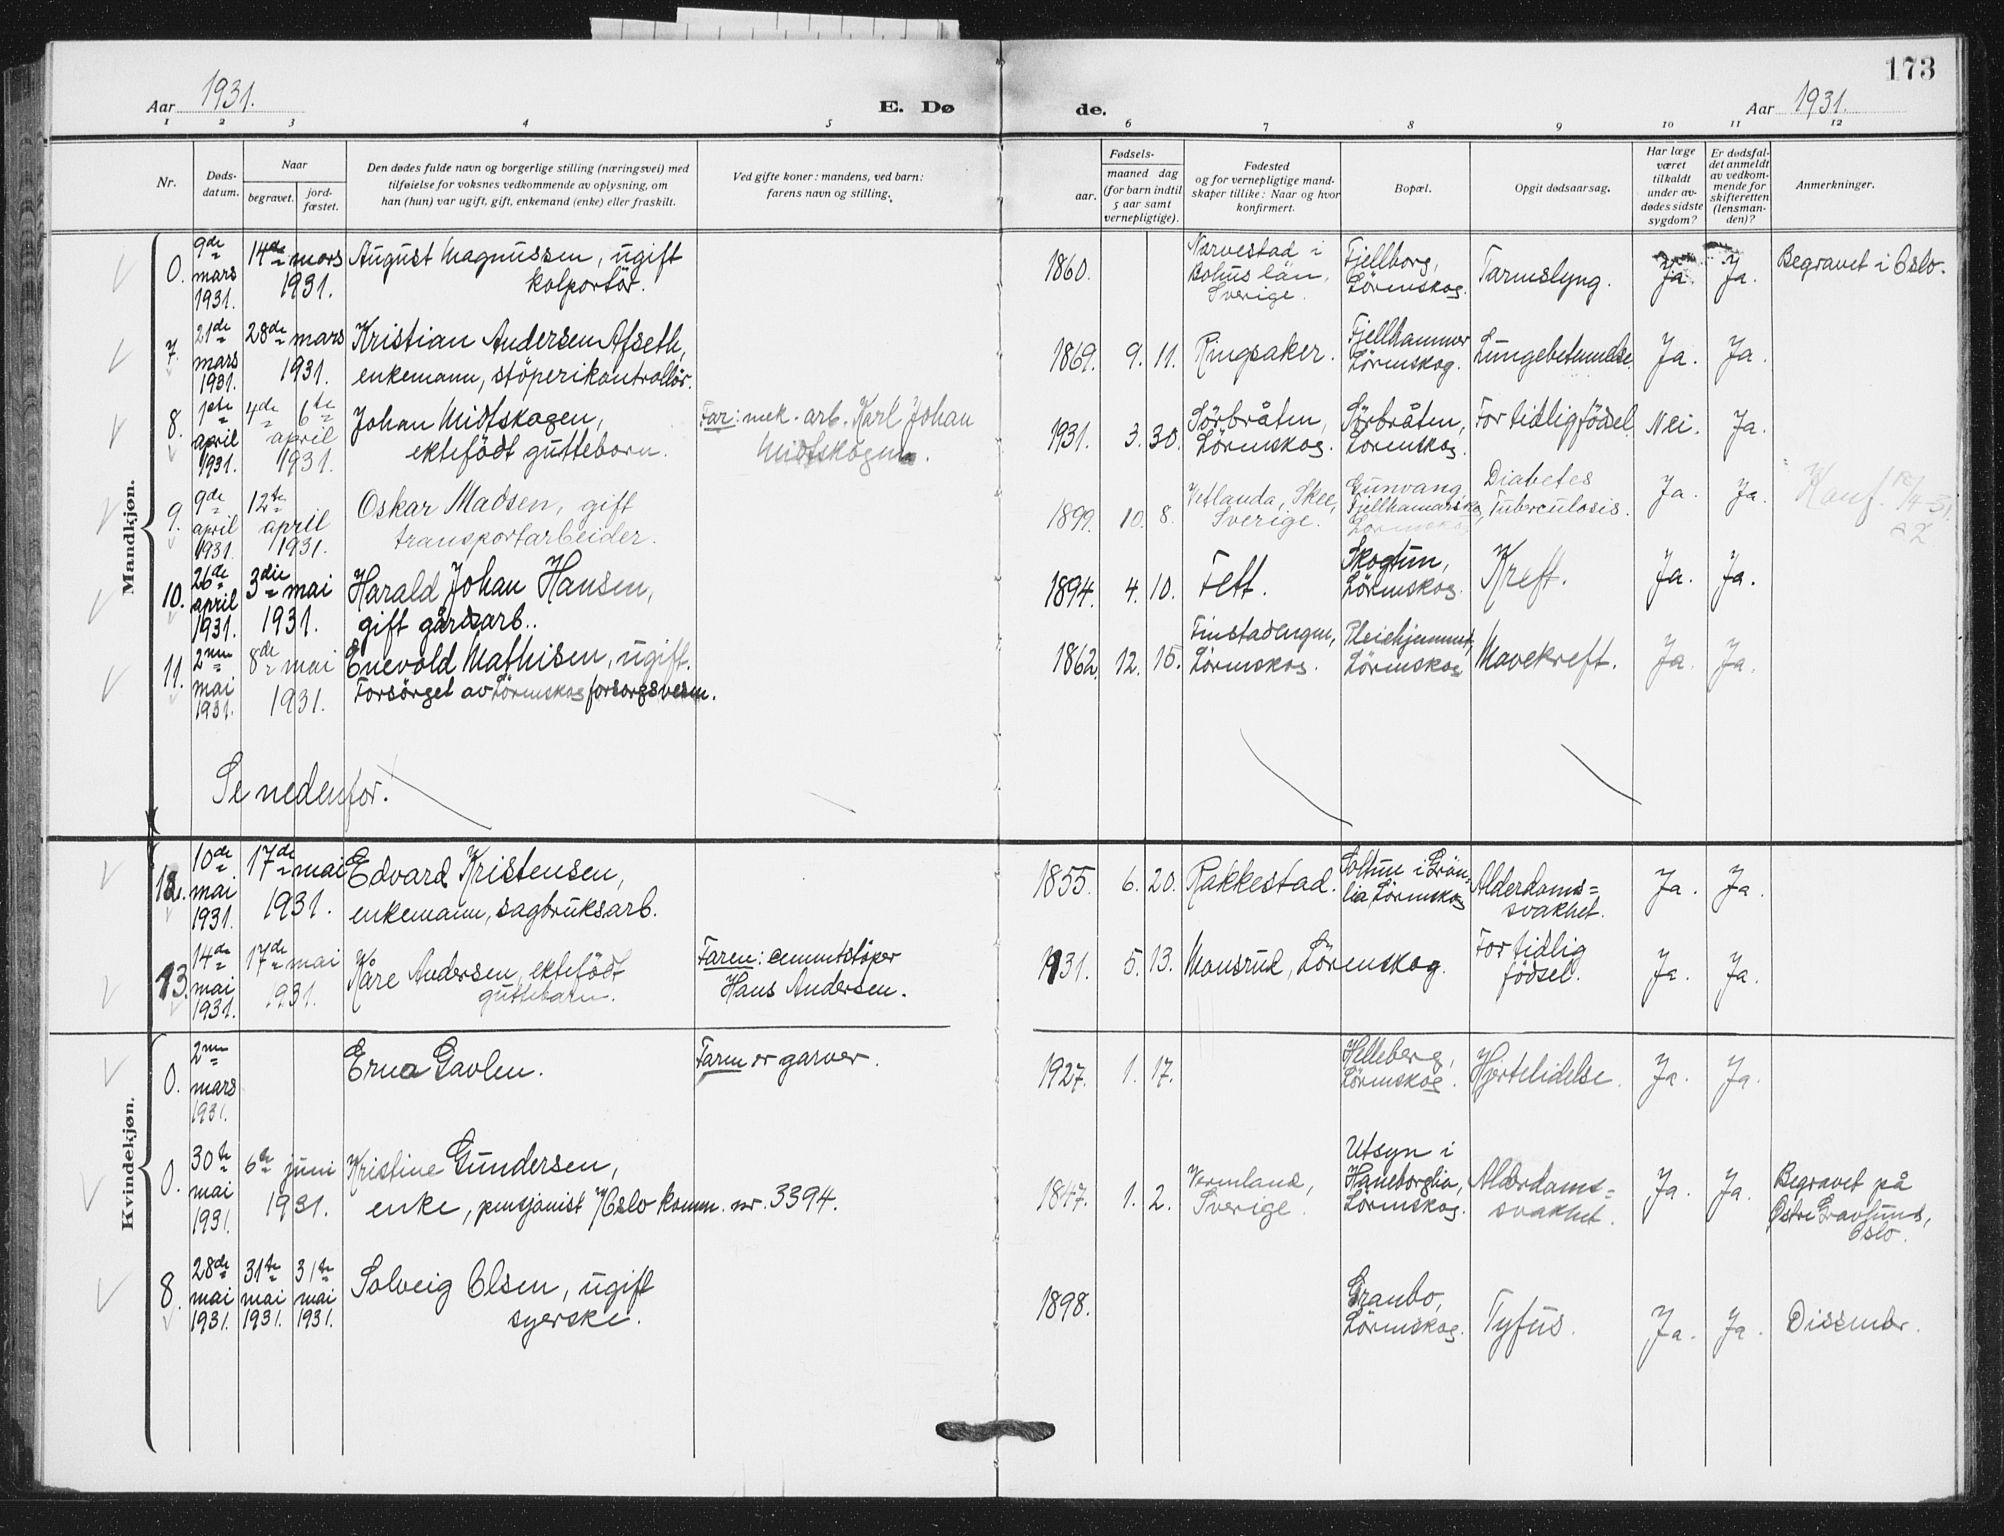 173
Aar 1931.
E. Dø
de.
Aar 1931.
1 2 3 4 5 6 7 8 9 10 11 12
Nr.
Døds-
datum.
Naar
begravet.
jord-
fæstet.
Den dødes fulde navn og borgerlige stilling (næringsvei) med
tilføielse for voksnes vedkommende av oplysning, om
han (hun) var ugift, gift, enkemand (enke) eller fraskilt.
Ved gifte koner: mandens, ved barn:
farens navn og stilling.
Fødsels-
aar.
maaned dag
(for barn indtil
5 aar samt
vernepligtige).
Fødested
og for vernepligtige mand-
skaper tillike: Naar og hvor
konfirmert.
Bopæl.
Opgit dødsaarsag.
Har læge
været
tilkaldt
under av-
dødes sidste
sygdom?
Er dødsfal-
det anmeldt
av vedkom-
mende for
skifteretten
(lensman-
den)?
Anmerkninger.
Mandkjøn.
0.
9de
mars
1931.
14de mars
1931.
August Magnussen, ugift
kolportør.
1860.
Narvestad i
Bohus län,
Sverige.
Fjellborg,
Lörenskog.
Tarmslyng.
Ja.
Ja.
Begravet i Oslo.
7.
21de
mars
1931.
28de mars
1931.
Kristian Andersen Afseth,
enkemann, stöperikontrollör.
1869. 9. 11.
Ringsaker.
Fjellhammer
Lörenskog.
Lungebetennelse
Ja.
Ja.
8.
1ste
april
1931.
4de 6te
april
1931.
Johan Midtskogen,
ektefödt guttebarn.
Far: mek. arb. Karl Johan
Midtskogen.
1931. 3. 30.
Sörbråten,
Lörenskog.
Sörbråten,
Lörenskog.
For tidlig födsel.
Nei.
Ja.
9.
9de
april
1931.
12te
april
1931.
Oskar Madsen, gift
transportarbeider.
1899. 10. 8.
Vetlanda, Skee,
Sverige.
Gunvang,
Lörenskog
Diabetes
Tuberculosis.
Ja.
Ja.
10.
26de
april
1931.
3die mai
1931.
Harald Johan Hansen,
gift gårdsarb..
1894. 4. 10.
Fett.
Skogtun,
Lörenskog.
Kreft.
Ja.
Ja.
11.
2nen
mai
1931.
8de mai
1931.
Enevold Mathisen, ugift.
Forsörget av Lörenskog forsorgsvesen.
1862. 12. 15.
Finstadengen,
Lörenskog.
Pleiehjemmet,
Lörenskog
Mavekreft.
Ja.
Ja.
Se nedenfor.
12.
10de
mai
1931.
17de mai
1931.
Edvard Kristensen,
enkemann, sagbruksarb.
1855. 6. 20.
Rakkestad.
Soltun i Grön-
lia, Lörenskog
Alderdoms=
svakhet.
Ja.
Ja.
13.
14de
mai
1931.
17de mai
1931.
Kåre Andersen, ektefödt
guttebarn.
Faren: cementstöper
Hans Andersen.
1931. 5. 13.
Monsrud, Lörenskog.
For tidlig
födsel.
Ja.
Ja.
Kvindekjøn.
0.
2nen
mars
1931.
Erna Gavlen.
Faren er garver.
1927. 1. 17.
Helleberg,
Lörenskog.
Hjertelidelse.
Ja.
Ja.
0.
30te
mai
1931.
6te juni
1931.
Kristine Gundersen,
enke, pensjonist i/Oslo komm. nr. 3394.
1847. 1. 2.
Vermland,
Sverige.
Utsyn i
Haneborglia,
Lörenskog.
Alderdoms=
svakhet.
Ja.
Ja.
Begravet på
Østre Gravlund,
Oslo.
8.
28de
mai
1931.
31te
mai
1931.
31te
mai
1931.
Solveig Olsen, ugift
syerske.
1898.
Granbo,
Lörenskog.
Tyfus.
Ja.
Ja.
Dissenter.